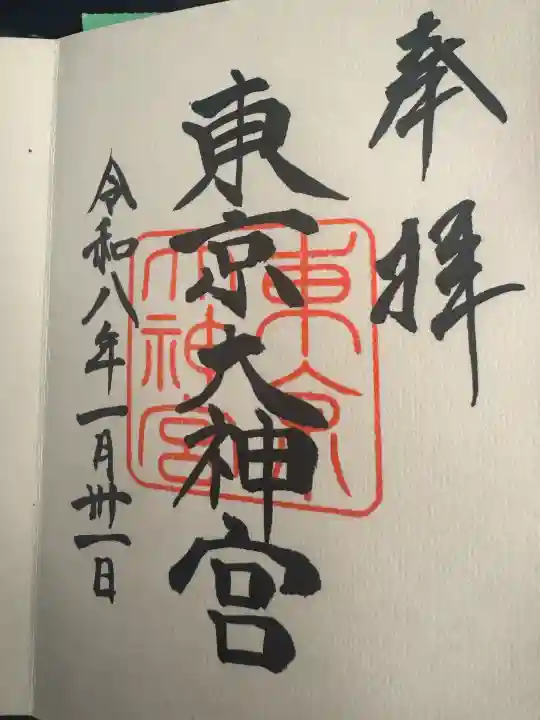 奉拝
東京大神宮
東京大神宮
令和八年一月卅一日